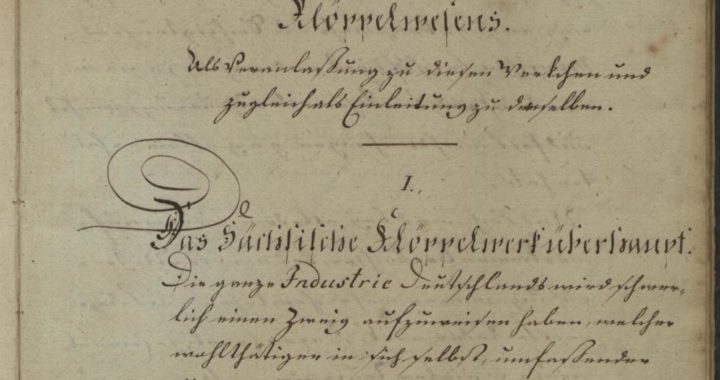 Klöppelwesens.
Als Veranlaßung zu diesen Werkchen und
zugleich als Einleitung zu demselben.
I.
Das Sächsische Klöppelwerk überhaupt.
Die ganze Industrie Deutschlands wird schwer-
lich einen Zweig aufzuweisen haben, welcher
wohlthätiger in sich selbst, umfassender